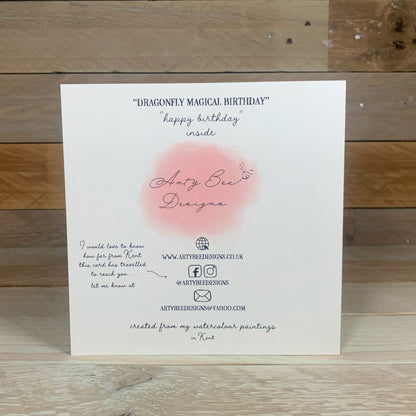 "DRAGONFLY MAGICAL BIRTHDAY"
"happy birthday"
inside
Arty Bee
Designs
I would love to know
how far from Kent
this card has travelled
to reach you ...
let me know at
WWW.ARTYBEEDESIGNS.CO.UK
@ARTYBEEDESIGNS
ARTYBEEDESIGNS@YAHOO.COM
created from my watercolour paintings
in Kent